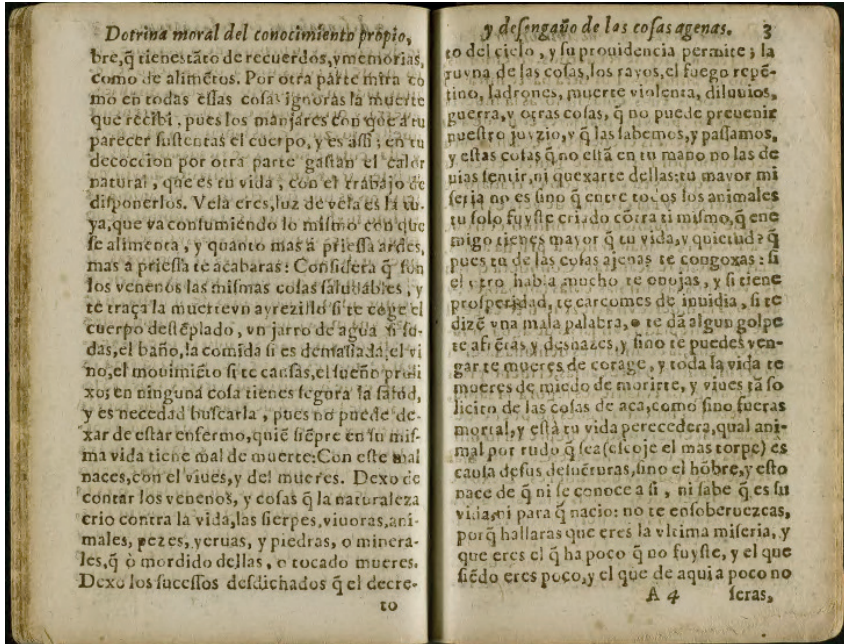 Dotrina moral del conocimiento propio,
bre, q̃ tienes tãto de recuerdos, y memorias,
como de alimẽtos. Por otra parte mira co
mo en todas essas cosas ignoras la muerte
que recibi, pues los manjares con que a tu
parecer sustentas el cuerpo, y es assi; en tu
decoccion por otra parte gastan el calor
natural, que es tu vida, con el trabajo de
disponerlos. Vela eres, luz de vela es la tu-
ya, que va consumiendo lo mismo con que
se alimenta, y quanto mas a priessa ardes,
mas a priessa te acabaras: Considera q̃ son
los venenos las mismas cosas saludables, y
te traça la muerte vn ayrezillo si te coge el
cuerpo destẽplado, vn jarro de agua si su-
das, el baño, la comida si es demasiada, el vi
no, el mouimiẽto si te cansas, el sueño proli
xo; en ninguna cosa tienes segura la salud,
y es necedad buscarla, pues no puede de-
xar de estar enfermo, quiẽ siẽpre en su mis-
ma vida tiene mal de muerte: Con este mal
naces, con el viues, y del mueres. Dexo de
contar los venenos, y cosas q̃ la naturaleza
crio contra la vida, las sierpes, viuoras, ani-
males, pezes, yeruas, y piedras, o minera-
les, q̃ ò mordido dellas, o tocado mueres.
Dexo los sucessos desdichados q̃ el decre-
to
y desengaño de las cosas agenas. 3
to del cielo, y su prouidencia permite; la
ruyna de las cosas, los rayos, el fuego repẽ-
tino, ladrones, muerte violenta, diluuios,
guerra, y otras cosas, q̃ no puede preuenir
nuestro juyzio, y q̃ las sabemos, y passamos,
y estas cosas q̃ no estã en tu mano no las de
uias sentir, ni quexarte dellas: tu mayor mi
seria no es sino q̃ entre todos los animales
tu solo fuyste criado cõtra ti mismo, q̃ ene
migo tienes mayor q̃ tu vida, y quietud? q̃
pues tu de las cosas ajenas te congoxas: si
el otro habla mucho te enojas, y si tiene
prosperidad, te carcomes de inuidia, si te
dizẽ vna mala palabra, o te dã algun golpe
te afrẽtas y desnazes, y sino te puedes ven-
gar te mueres de corage, y toda la vida te
mueres de miedo de morirte, y viues tã so
licito de las cosas de aca, como sino fueras
mortal, y està tu vida perecedera, qual ani-
mal por rudo q̃ sea (escoje el mas torpe) es
causa de sus desuẽturas, sino el hõbre, y esto
nace de q̃ ni se conoce a si, ni sabe q̃ es su
vida, ni para q̃ nacio: no te ensoberuezcas,
porq̃ hallaras que eres la vltima miseria, y
que eres el q̃ ha poco q̃ no fuyste, y el que
siẽdo eres poco, y el que de aqui a poco no
A 4 seras,